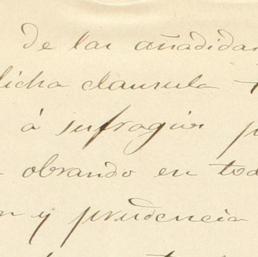 de las añadida
dicha clausula
á sufragios p
obrando en tod
n y prudencia